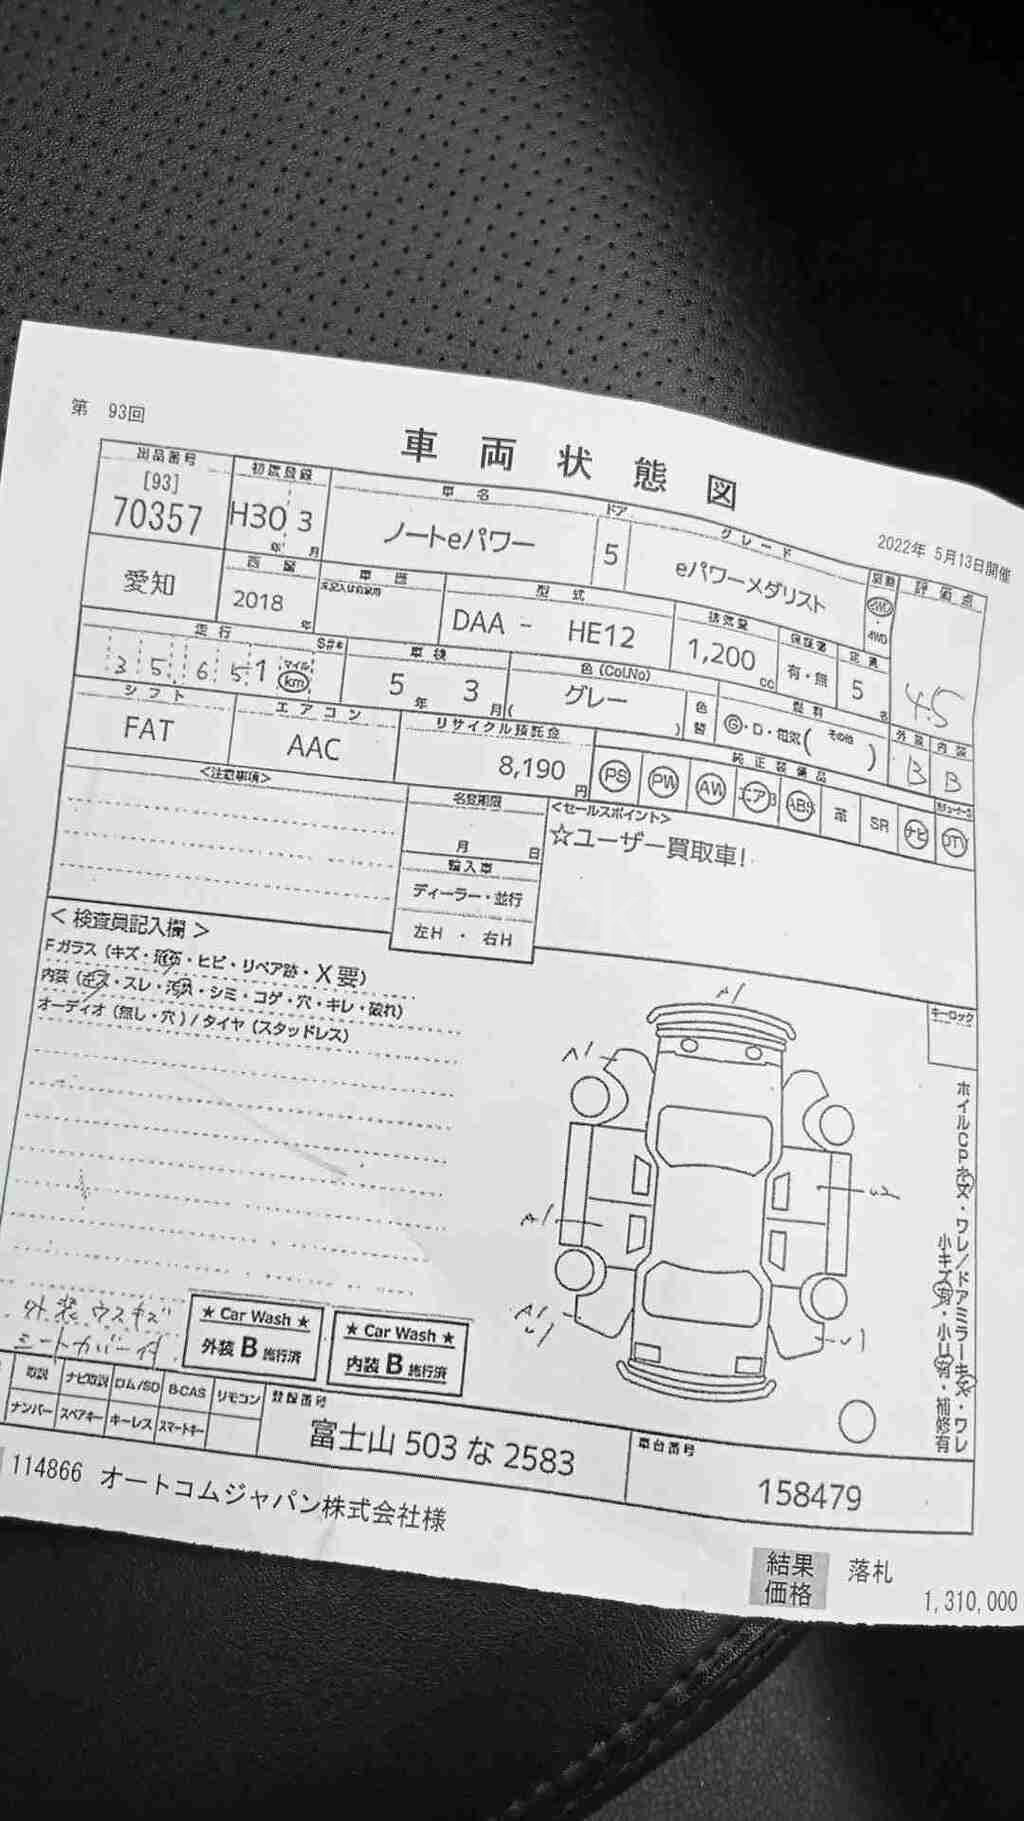 第 93回
車両状態図
2022年 5月13日開催
出品番号 初度登録 車名 ドア グレード 評価点
[93]
70357 H30 3 ノートeパワー 5 eパワーメダリスト
年 月
愛知 西暦 車歴 型式 排気量 保証書 定員 4WD
2018 年 DAA - HE12 1,200 cc 有・無 5 名 4.5
走行 車検 色(Col.No) 燃料 外装 内装
35,651 マイル km 5年 3月 グレー 色替 G・D・電気( その他 ) B B
シフト エアコン リサイクル預託金 純正装備品
FAT AAC 8,190 円 PS PW AW エアB ABS 革 SR ナビ DTV
<注意事項> 名変期限 <セールスポイント>
月 日 ☆ユーザー買取車!
輸入車
ディーラー・並行
左H ・ 右H
<検査員記入欄>
Fガラス (キズ・飛石・ヒビ・リペア跡・X要)
内装 (キズ・スレ・汚れ・シミ・コゲ・穴・キレ・破れ)
オーディオ (無し・穴) / タイヤ (スタッドレス)
キーロック
A1
A1
U2
A1
A1
U1
U1
ホイルCPキズ・ワレ/ドアミラーキズ・ワレ
小キズ有・小U有・補修有
外装ウスキズ
シートカバー付
★ Car Wash ★
外装 B 施行済
★ Car Wash ★
内装 B 施行済
取説 ナビ取説 ロム/SD B-CAS リモコン 登録番号
ナンバー スペアキー キーレス スマートキー
富士山 503 な 2583
車台番号
158479
114866 オートコムジャパン株式会社様
結果 落札
価格 1,310,000